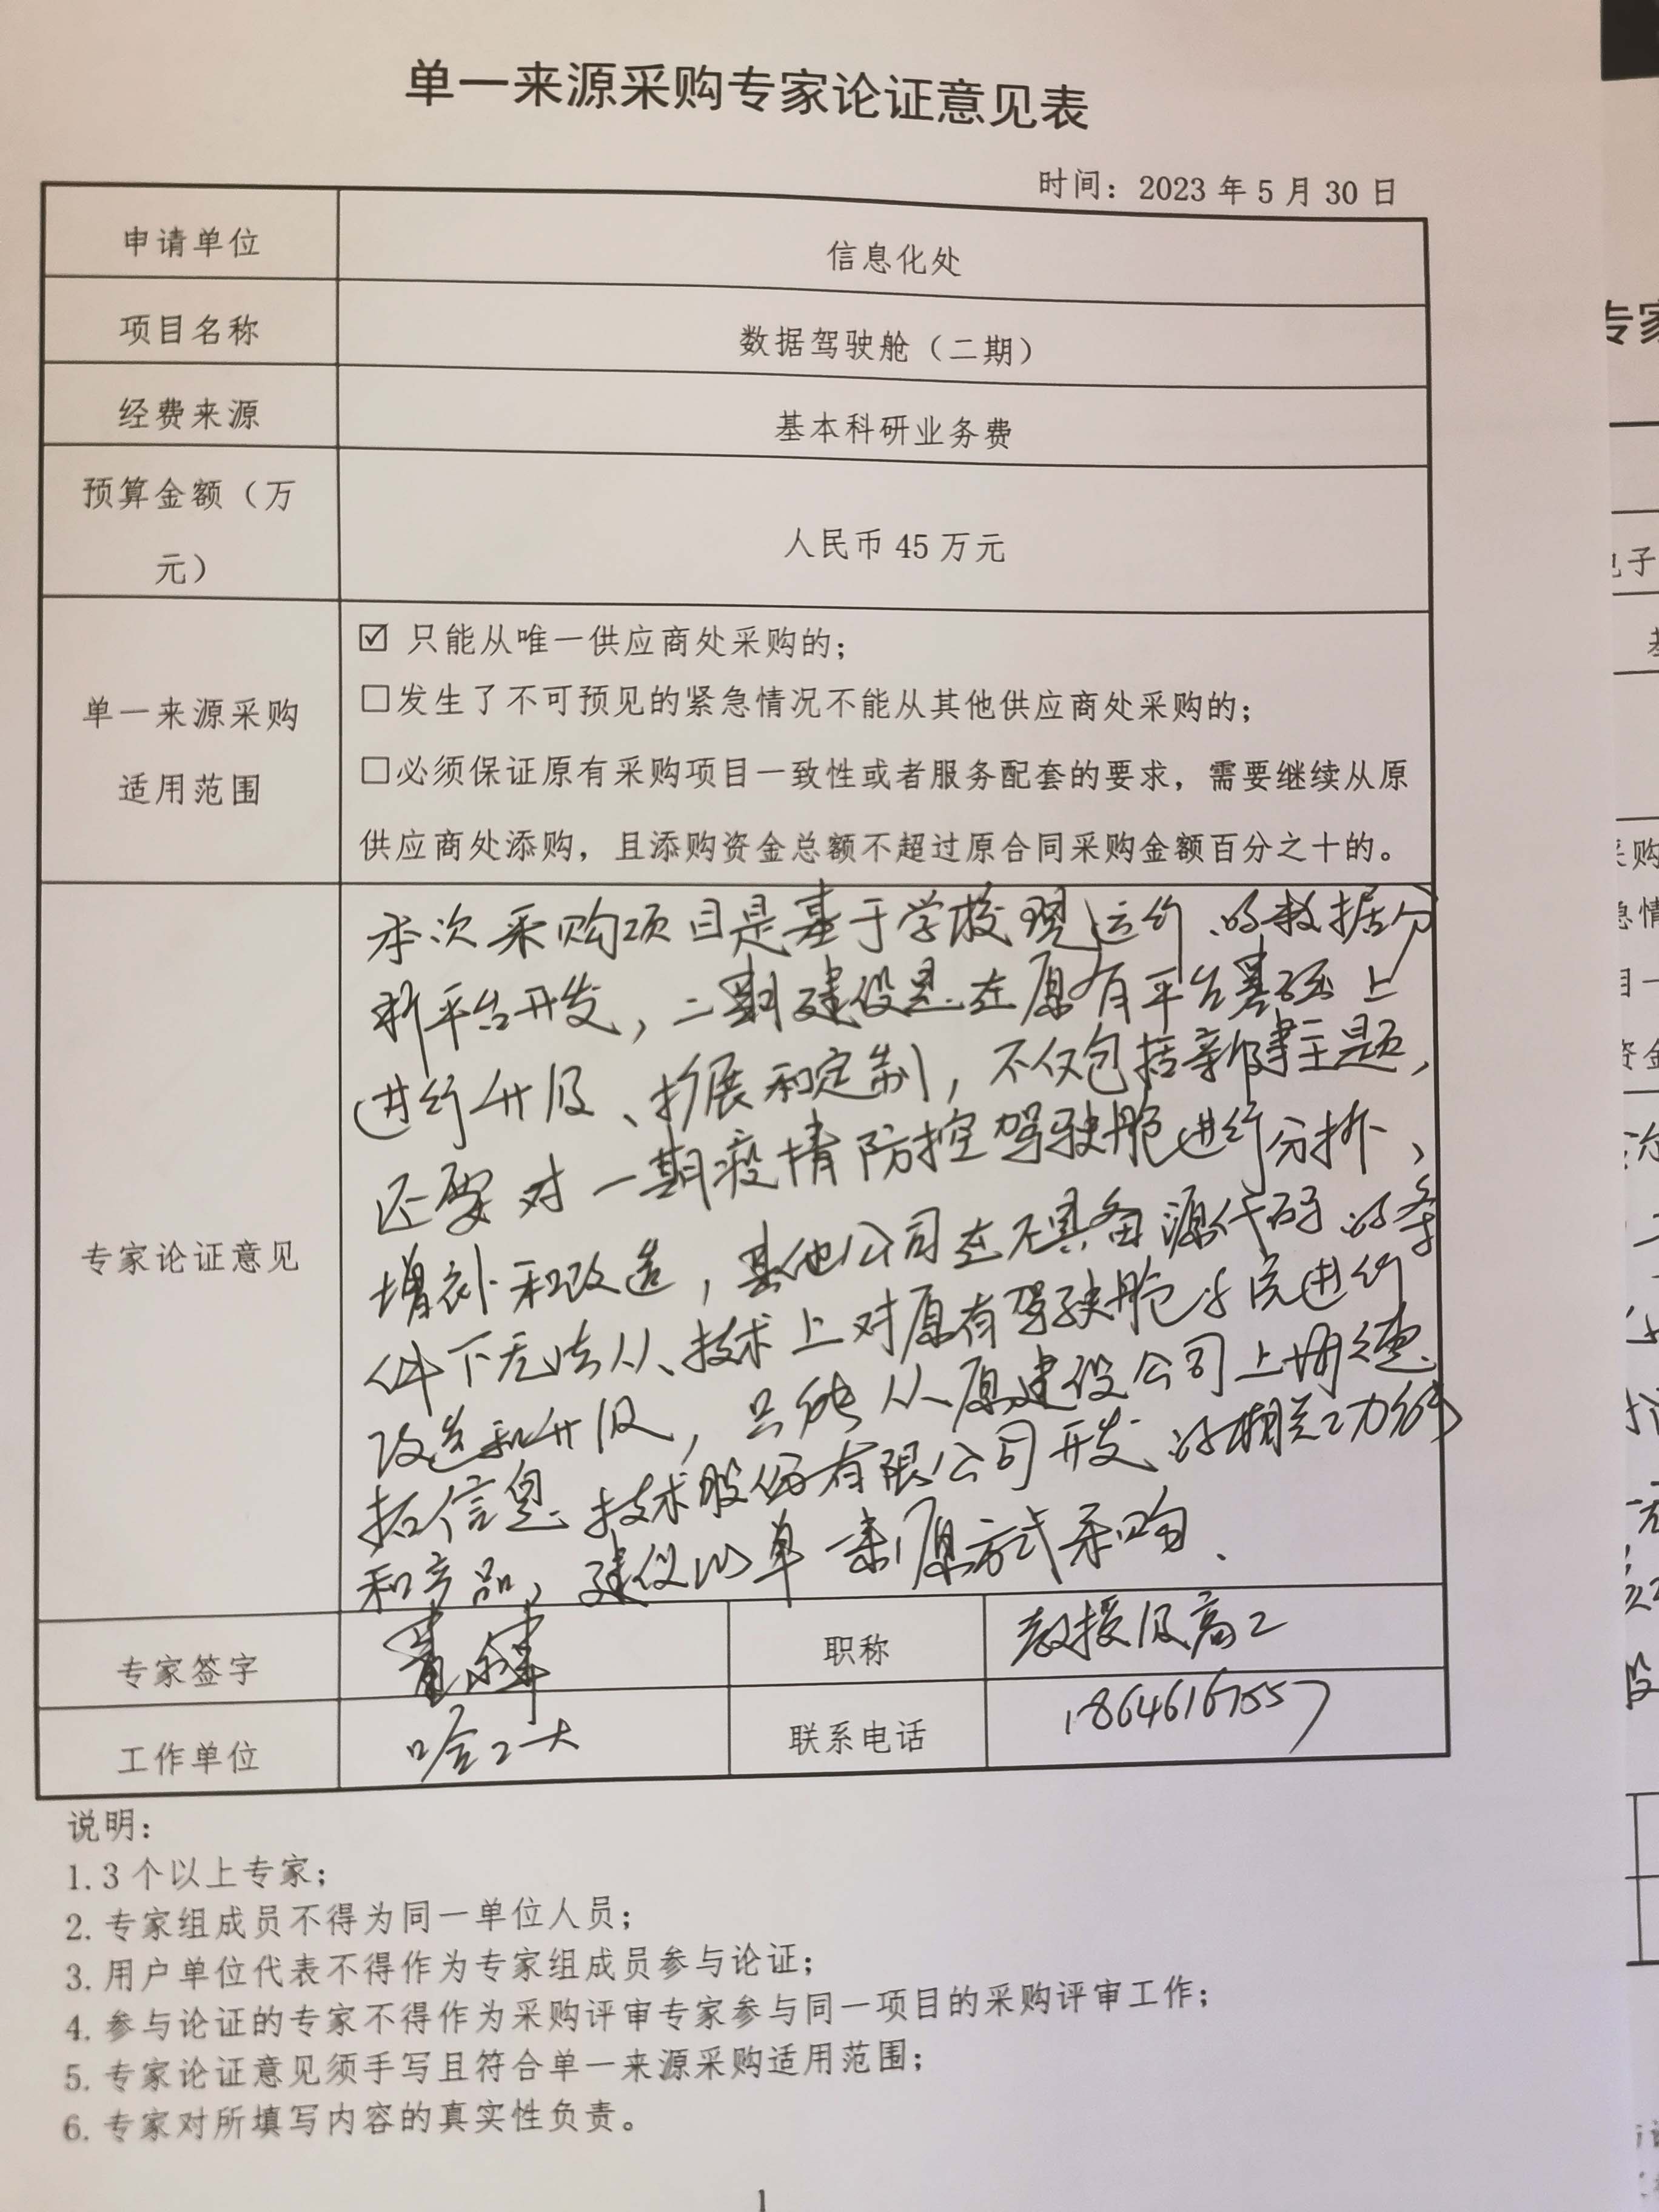 单一来源采购专家论证意见表
时间：2023年5月30日
申请单位
信息化处
项目名称
数据驾驶舱（二期）
经费来源
基本科研业务费
预算金额（万
元）
人民币45万元
单一来源采购
适用范围
☑ 只能从唯一供应商处采购的；
□发生了不可预见的紧急情况不能从其他供应商处采购的；
□必须保证原有采购项目一致性或者服务配套的要求，需要继续从原
供应商处添购，且添购资金总额不超过原合同采购金额百分之十的。
专家论证意见
本次采购项目是基于学校现运行的数据分
析平台开发，二期建设是在原有平台基础上
进行升级、扩展和定制，不仅包括新建主题，
还要对一期疫情防控驾驶舱进行分拆、
增补和改造，其他公司在不具备源代码的条
件下无法从技术上对原有驾驶舱系统进行
改造和升级，只能从原建设公司上海德
拓信息技术股份有限公司开发的相关功能
和产品，建议以单一来源方式采购．
专家签字
职称
教授级高工
工作单位
哈工大
联系电话
说明：
1. 3个以上专家；
2. 专家组成员不得为同一单位人员；
3. 用户单位代表不得作为专家组成员参与论证；
4. 参与论证的专家不得作为采购评审专家参与同一项目的采购评审工作；
5. 专家论证意见须手写且符合单一来源采购适用范围；
6. 专家对所填写内容的真实性负责。
1